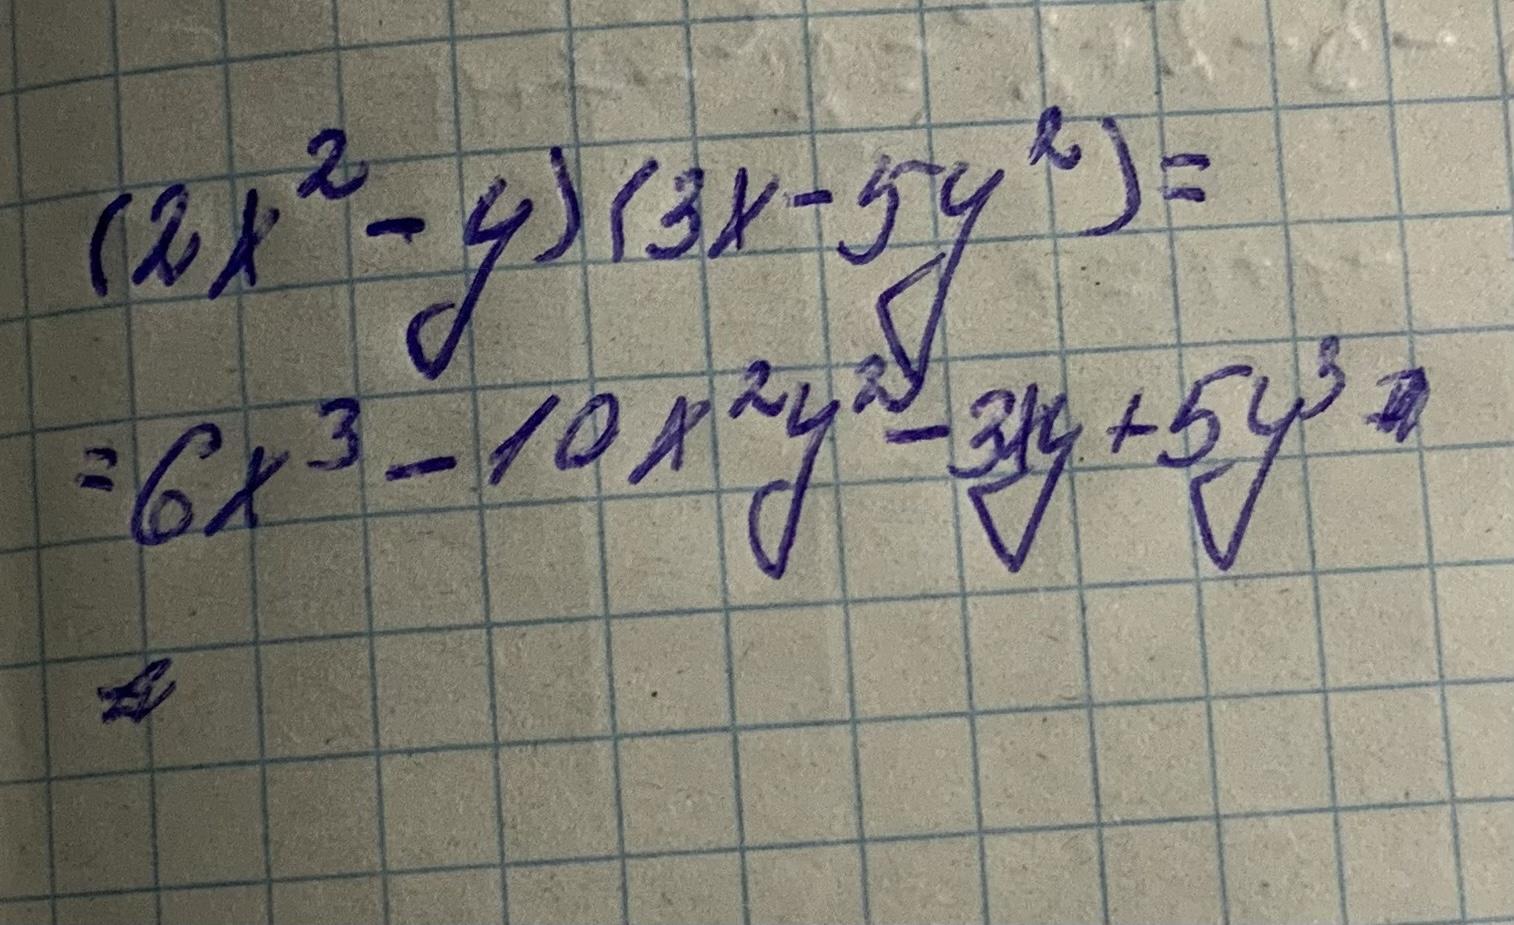 (2x² - y)(3x - 5y²) =
= 6x³ - 10x²y² - 3xy + 5y³